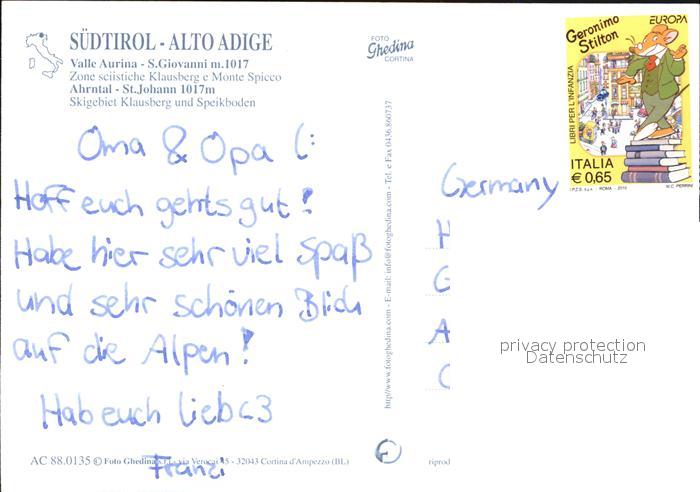 SÜDTIROL - ALTO ADIGE
Valle Aurina - S.Giovanni m.1017
Zone sciistiche Klausberg e Monte Spicco
Ahrntal - St.Johann 1017m
Skigebiet Klausberg und Speikboden
Oma & Opa (:
Hoff euch gehts gut!
Habe hier sehr viel Spaß
und sehr schönen Blick
auf die Alpen!
Hab euch lieb <3
Franzi
AC 88.0135 © Foto Ghedina s.r.l. - via Verocai 45 - 32043 Cortina d'Ampezzo (BL)
FOTO
Ghedina
CORTINA
http//www.fotoghedina.com - E-mail: info@fotoghedina.com - Tel. e Fax 0436.860737
Geronimo
Stilton
EUROPA
LIBRI PER L'INFANZIA
ITALIA
€ 0,65
I.P.Z.S. S.p.A. - ROMA - 2010
M.C. PERRINI
Germany
H
G
A
privacy protection
Datenschutz
riprod